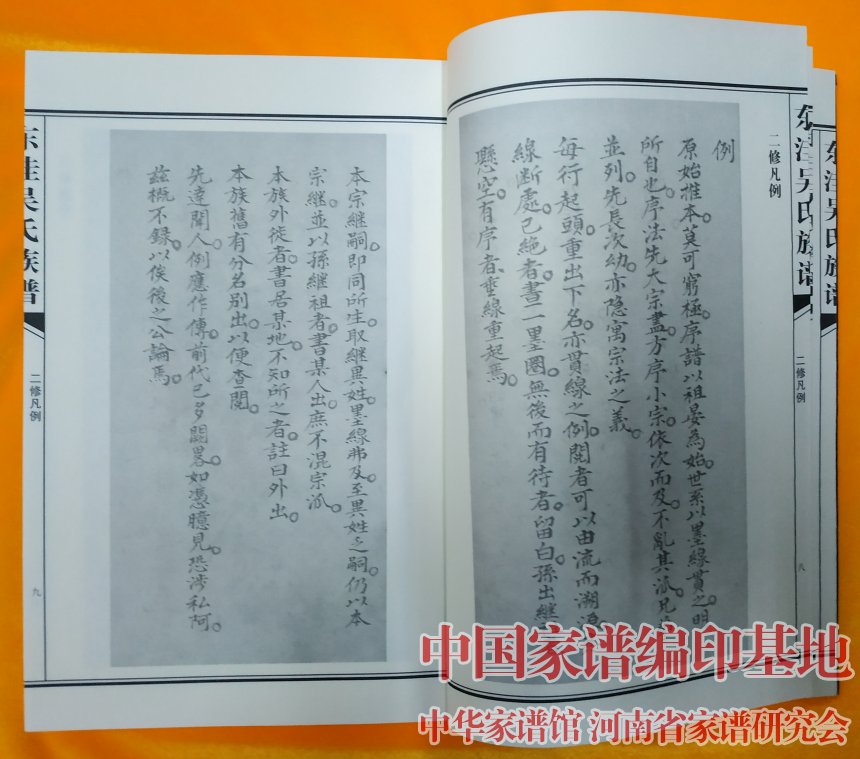 东洼吴氏族谱
东洼吴氏族谱
二修凡例
二修凡例
八
例
原始推本莫可窮極序譜以祖晏為始世系以墨線貫之明
所自也序法先大宗盡方序小宗依次而及不亂其派兄弟
並列先長次幼亦隐寓宗法之義
每行起頭重出下名亦貫線之例閱者可以由流而溯源
線斷處已絕者書一墨圈無後而有待者留白孫出繼
懸空有序者垂線重起焉
本宗继嗣即同所生取继異姓墨線弗及至異姓之嗣仍以本
宗继並以孫継祖者書某人出庶不混宗派
本族外徙者書居某地不知所之者註曰外出
本族舊有分名别出以便查閱
先達聞人例應作傳前代已多闕畧如憑臆見恐涉私阿
兹概不録以俟後之公論焉
东洼吴氏族谱
二修凡例
九
中国家谱编印基地
中华家谱馆 河南省家谱研究会